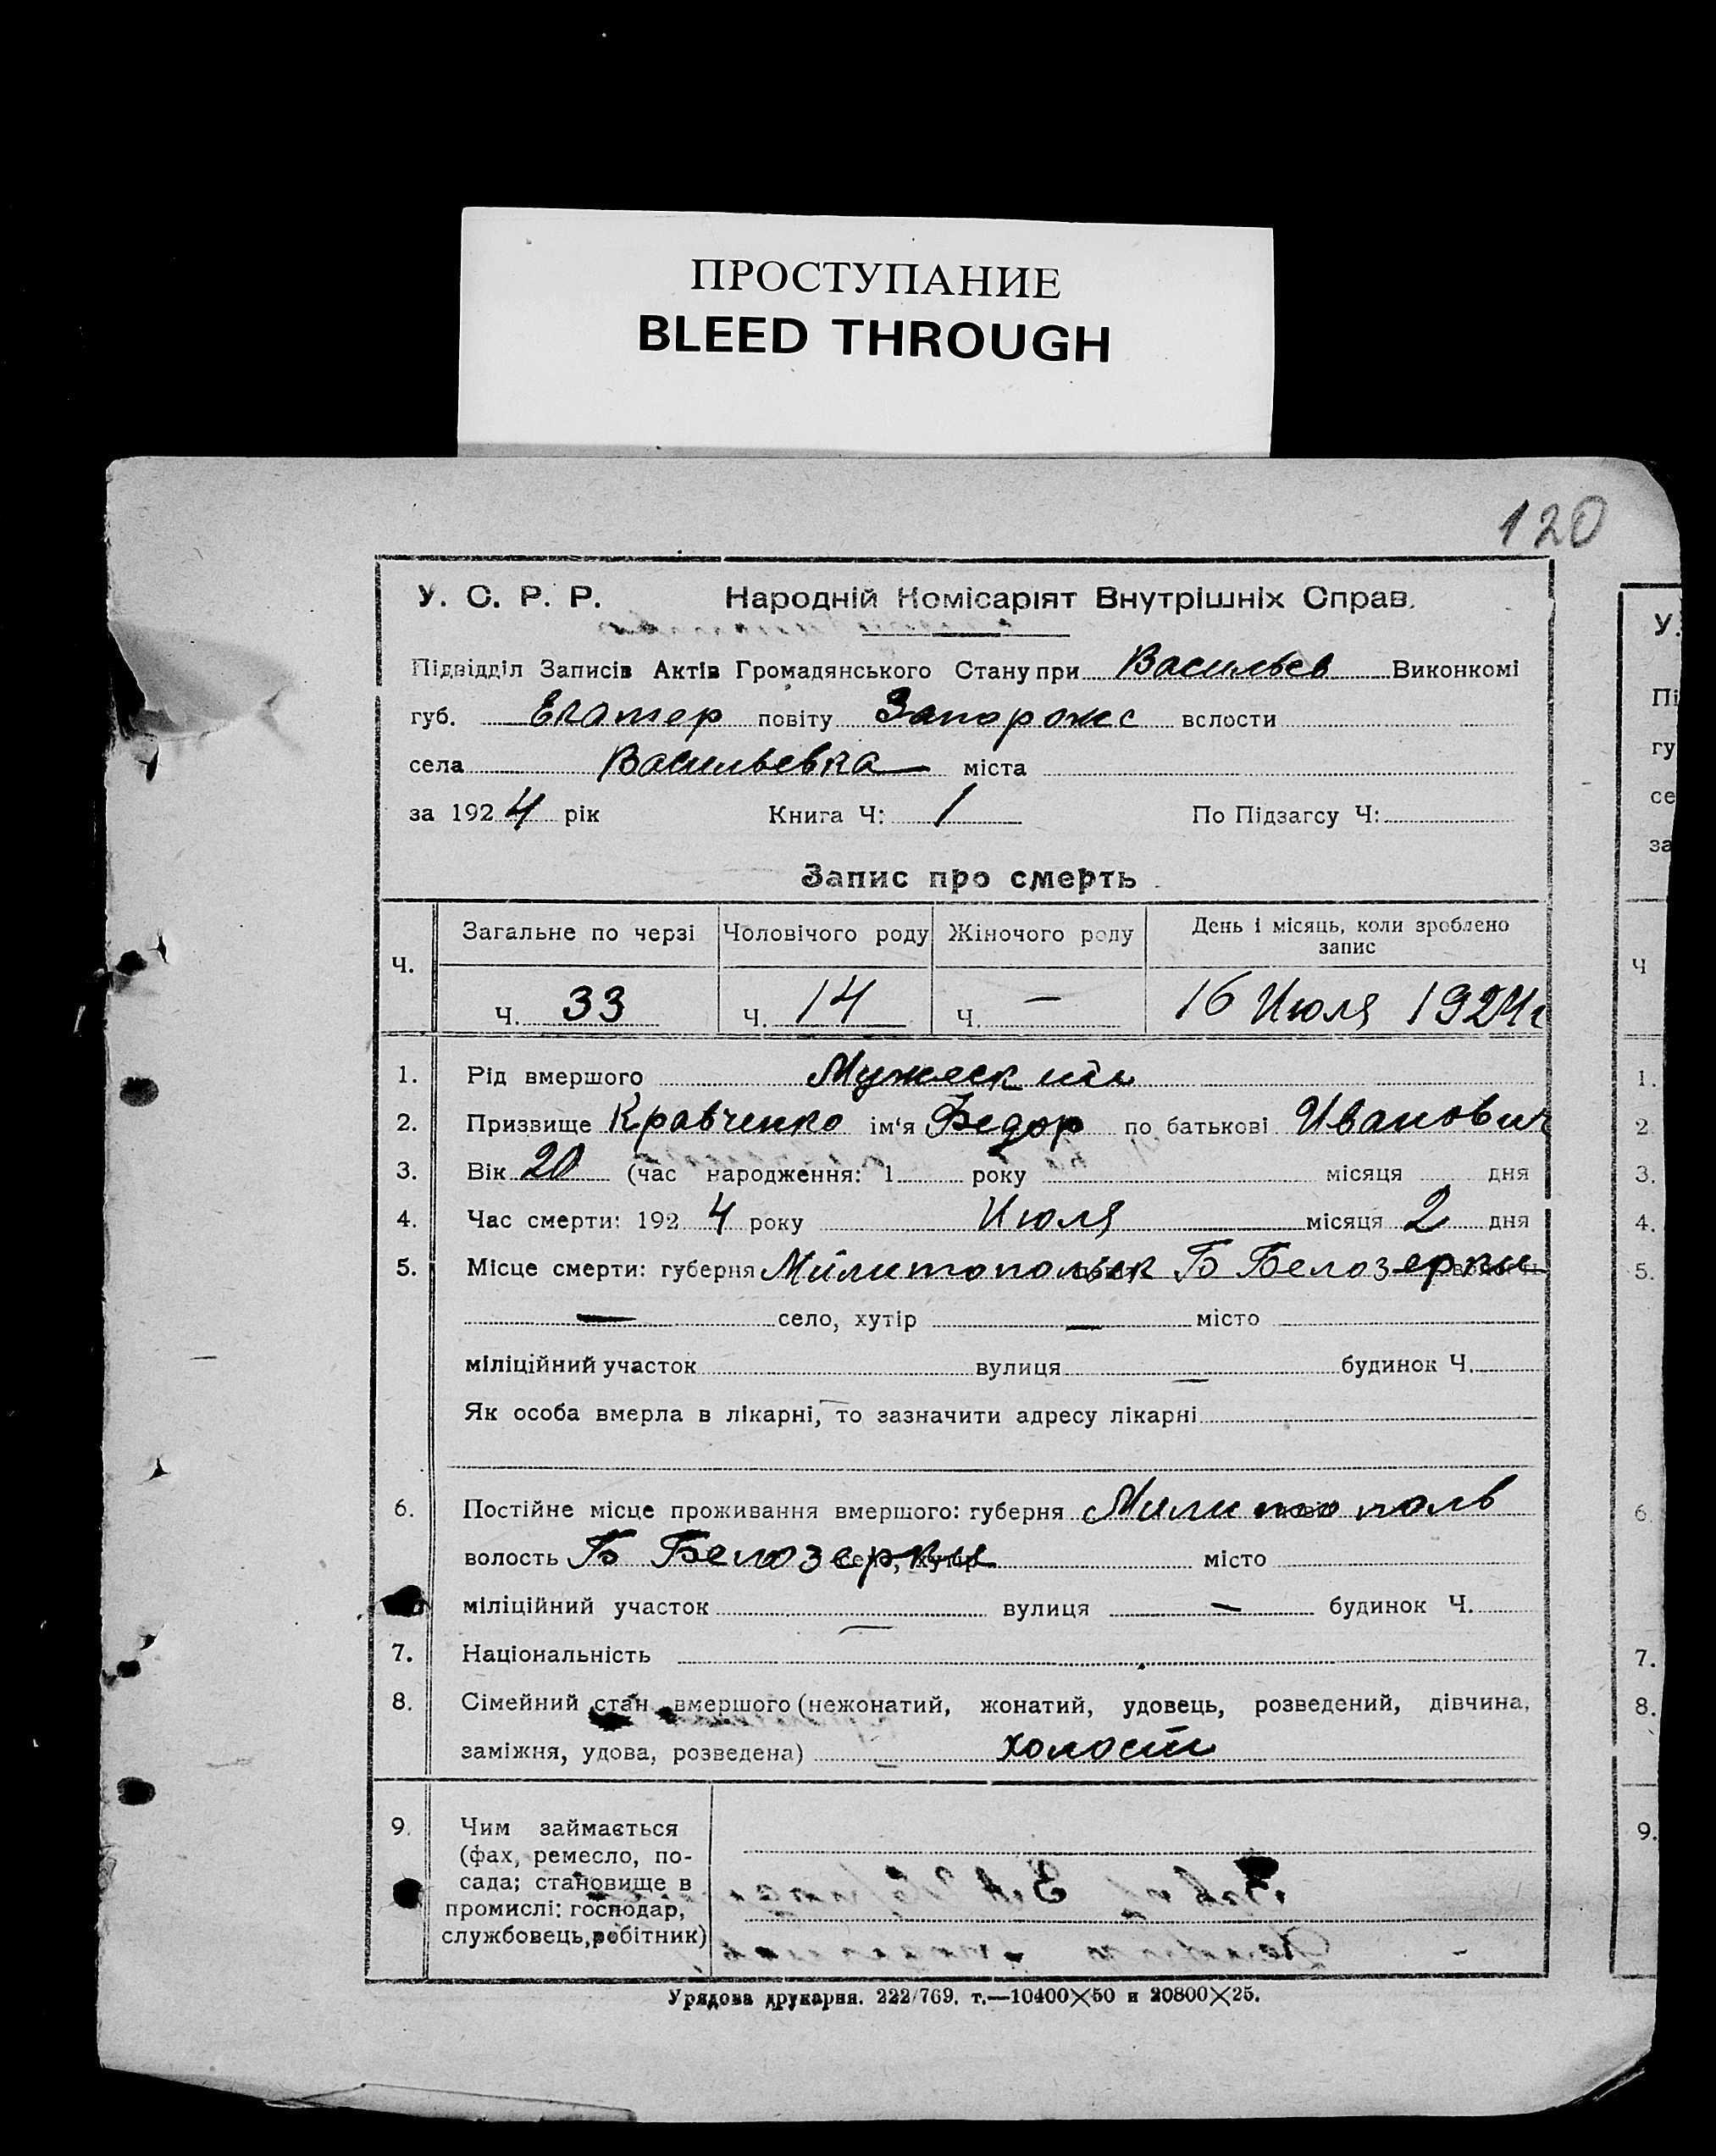 ПРОСТУПАНИЕ
BLEED THROUGH
120
У. С. Р. Р. Народній Комісаріят Внутрішніх Справ.
Підвідділ Записів Актів Громадянського Стану при Васильев Виконкомі
губ. Екатер повіту Запорожс волости
села Васильевка міста
за 1924 рік Книга Ч: 1 По Підзагсу Ч:
Запис про смерть
Ч. Загальне по черзі Чоловічого роду Жіночого роду День і місяць, коли зроблено запис
Ч. 33 Ч. 14 Ч. — 16 Июля 1924г
1. Рід вмершого Мужеский
2. Призвище Кравченко ім'я Федор по батькові Иванович
3. Вік 20 (час народження: 1 року місяця дня
4. Час смерти: 1924 року Июля місяця 2 дня
5. Місце смерти: губерня Милитопольск Б Белозерки
— село, хутір — місто
міліційний участок вулиця — будинок Ч.
Як особа вмерла в лікарні, то зазначити адресу лікарні
6. Постійне місце проживання вмершого: губерня Милитополь
волость Б Белозерки село, хутір місто
міліційний участок вулиця — будинок Ч.
7. Національність
8. Сімейний стан вмершого (нежонатий, жонатий, удовець, розведений, дівчина,
заміжня, удова, розведена) холост
9. Чим займається
(фах, ремесло, по-
сада; становище в
промислі: господар,
службовець, робітник)
Урядова друкарня. 222/769. т.—10400×50 и 20800×25.
У.
Пі
гу
се
за
Ч
1.
2
3.
4.
5.
6
7.
8.
9.